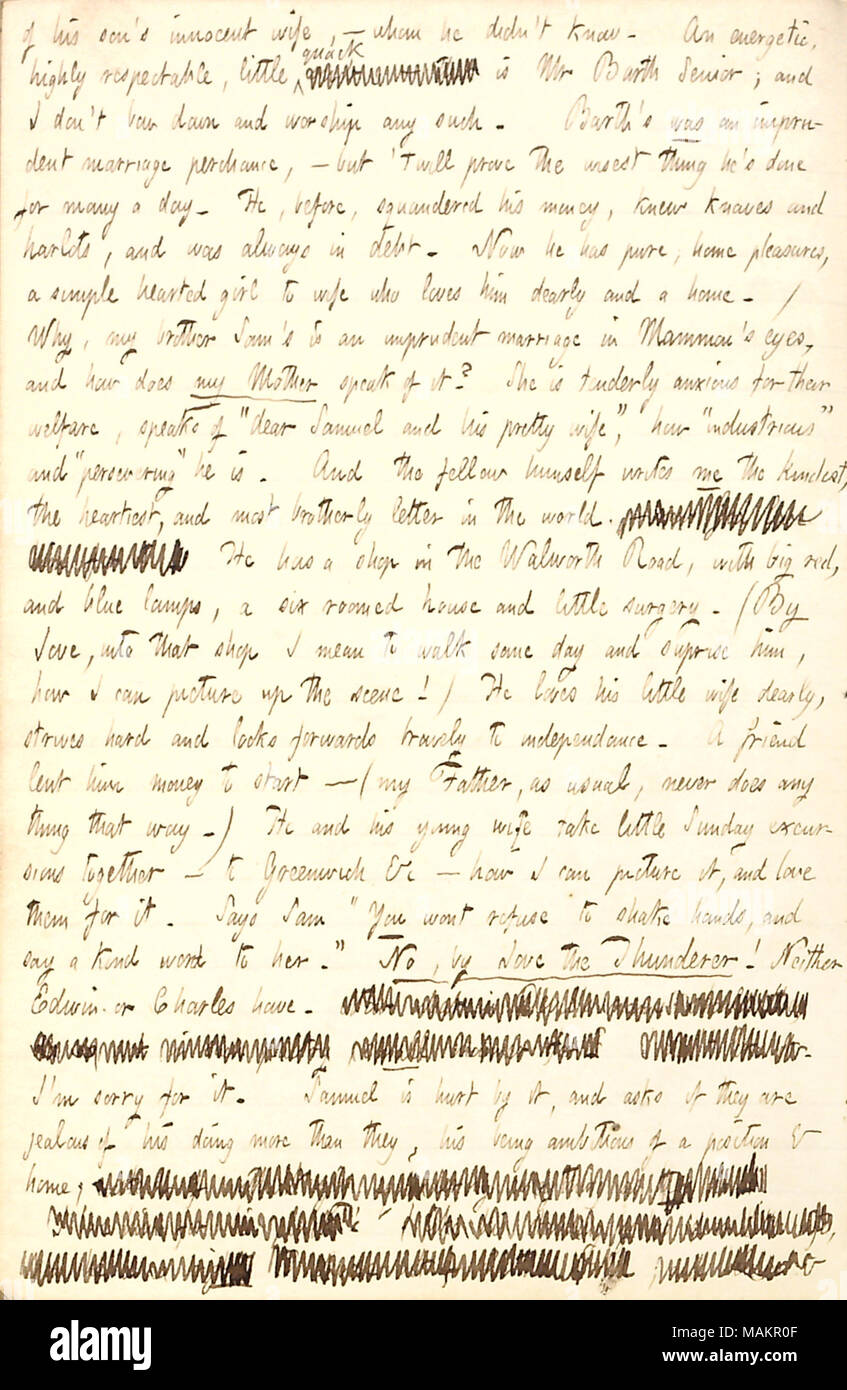 of his son's innocent wife, — whom he didn't know. An energetic,
quack
highly respectable, little, is Mr Barth Senior; and
I don't bow down and worship any such. Barth's was an impru-
dent marriage perchance, — but 'twill prove the wisest thing he's done
for many a day. He, before, squandered his money, knew knaves and
harlots, and was always in debt. Now he has pure, home pleasures,
a simple hearted girl to wife who loves him dearly and a home. /
Why, my brother Sam's is an imprudent marriage in Mammon's eyes,
and how does my Mother speak of it? She is tenderly anxious for their
welfare, speaks of "dear Samuel and his pretty wife", how "industrious"
and "persevering" he is. And the fellow himself writes me the kindest,
the heartiest, and most brotherly letter in the world.
He has a shop in the Walworth Road, with big red,
and blue lamps, a six roomed house and little surgery. (By
Jove, into that shop I mean to walk some day and suprise him,
how I can picture up the scene!) He loves his little wife dearly,
strives hard and looks forwards bravely to independance. A friend
lent him money to start — (my Father, as usual, never does any
thing that way.) He and his young wife take little Sunday excur-
sions together — to Greenwich &c — how I can picture it, and love
them for it. Says Sam "You wont refuse to shake hands, and
say a kind word to her." No, by Jove the Thunderer! Neither
Edwin or Charles have.
I'm sorry for it. Samuel is hurt by it, and asks if they are
jealous of his doing more than they, his being ambitious of a position &
home;
&
alamy
Image ID: MAKR0F
www.alamy.com